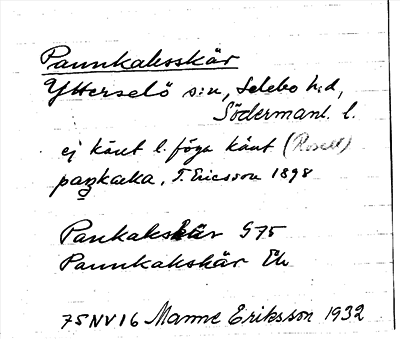 Pannkaksskär
Ytterselö s:n, Selebo h:d,
Södermanl. l.
ej känt l. föga känt (Rosell)
pannkaka, T. Ericsson 1898
Pankakskär G 75
Pannkakskär Ek
75NV16 Manne Eriksson 1932